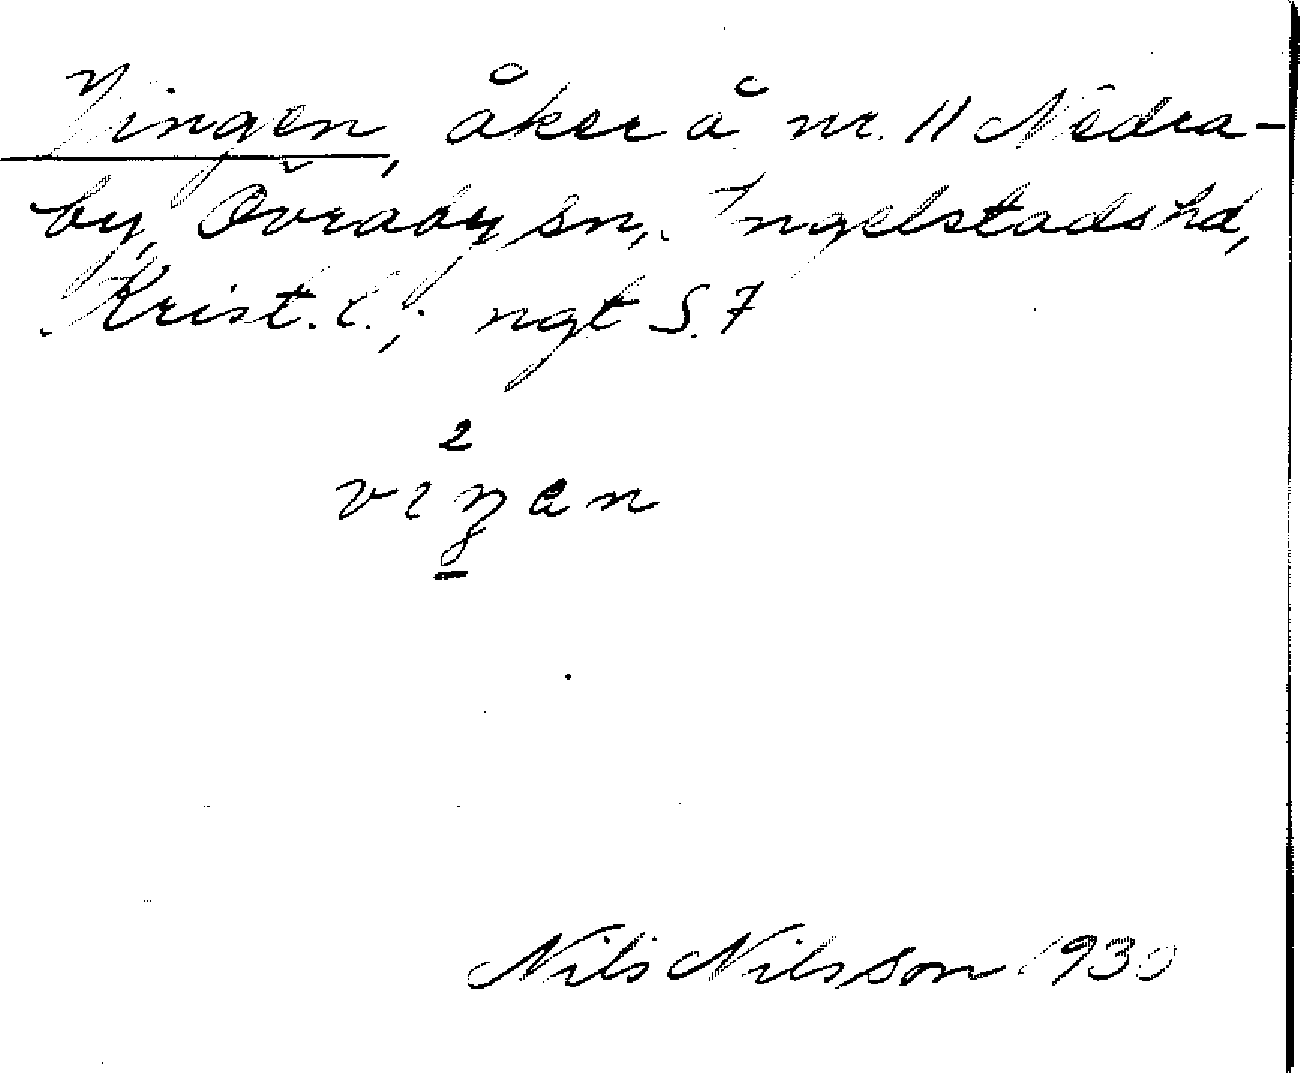 Vingen, åker å nr. 11 Nedra-
by, Övraby sn, Ingelstads hd,
Krist. l.; ngt S. 7
2
viŋen
Nils Nilsson 1930